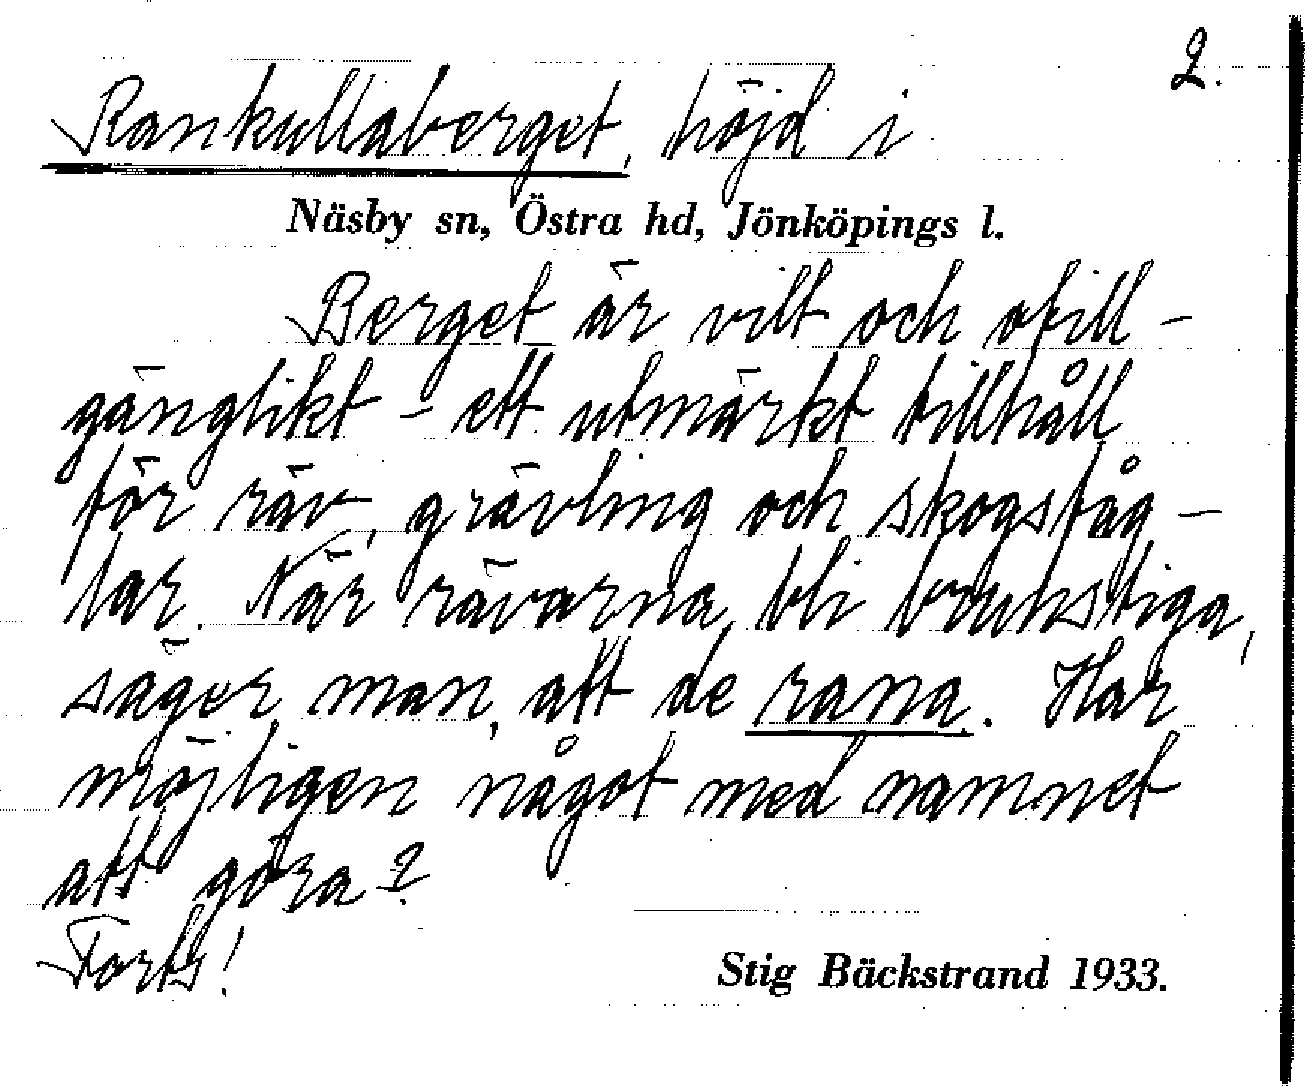 2.
Rankullaberget, höjd i
Näsby sn, Östra hd, Jönköpings l.
Berget är vilt och otill-
gänglikt - ett utmärkt tillhåll
för räv, grävling och skogsfåg-
lar. När rävarna bli brunstiga,
säger man, att de rana. Har
möjligen något med namnet
att göra?
Forts!
Stig Bäckstrand 1933.